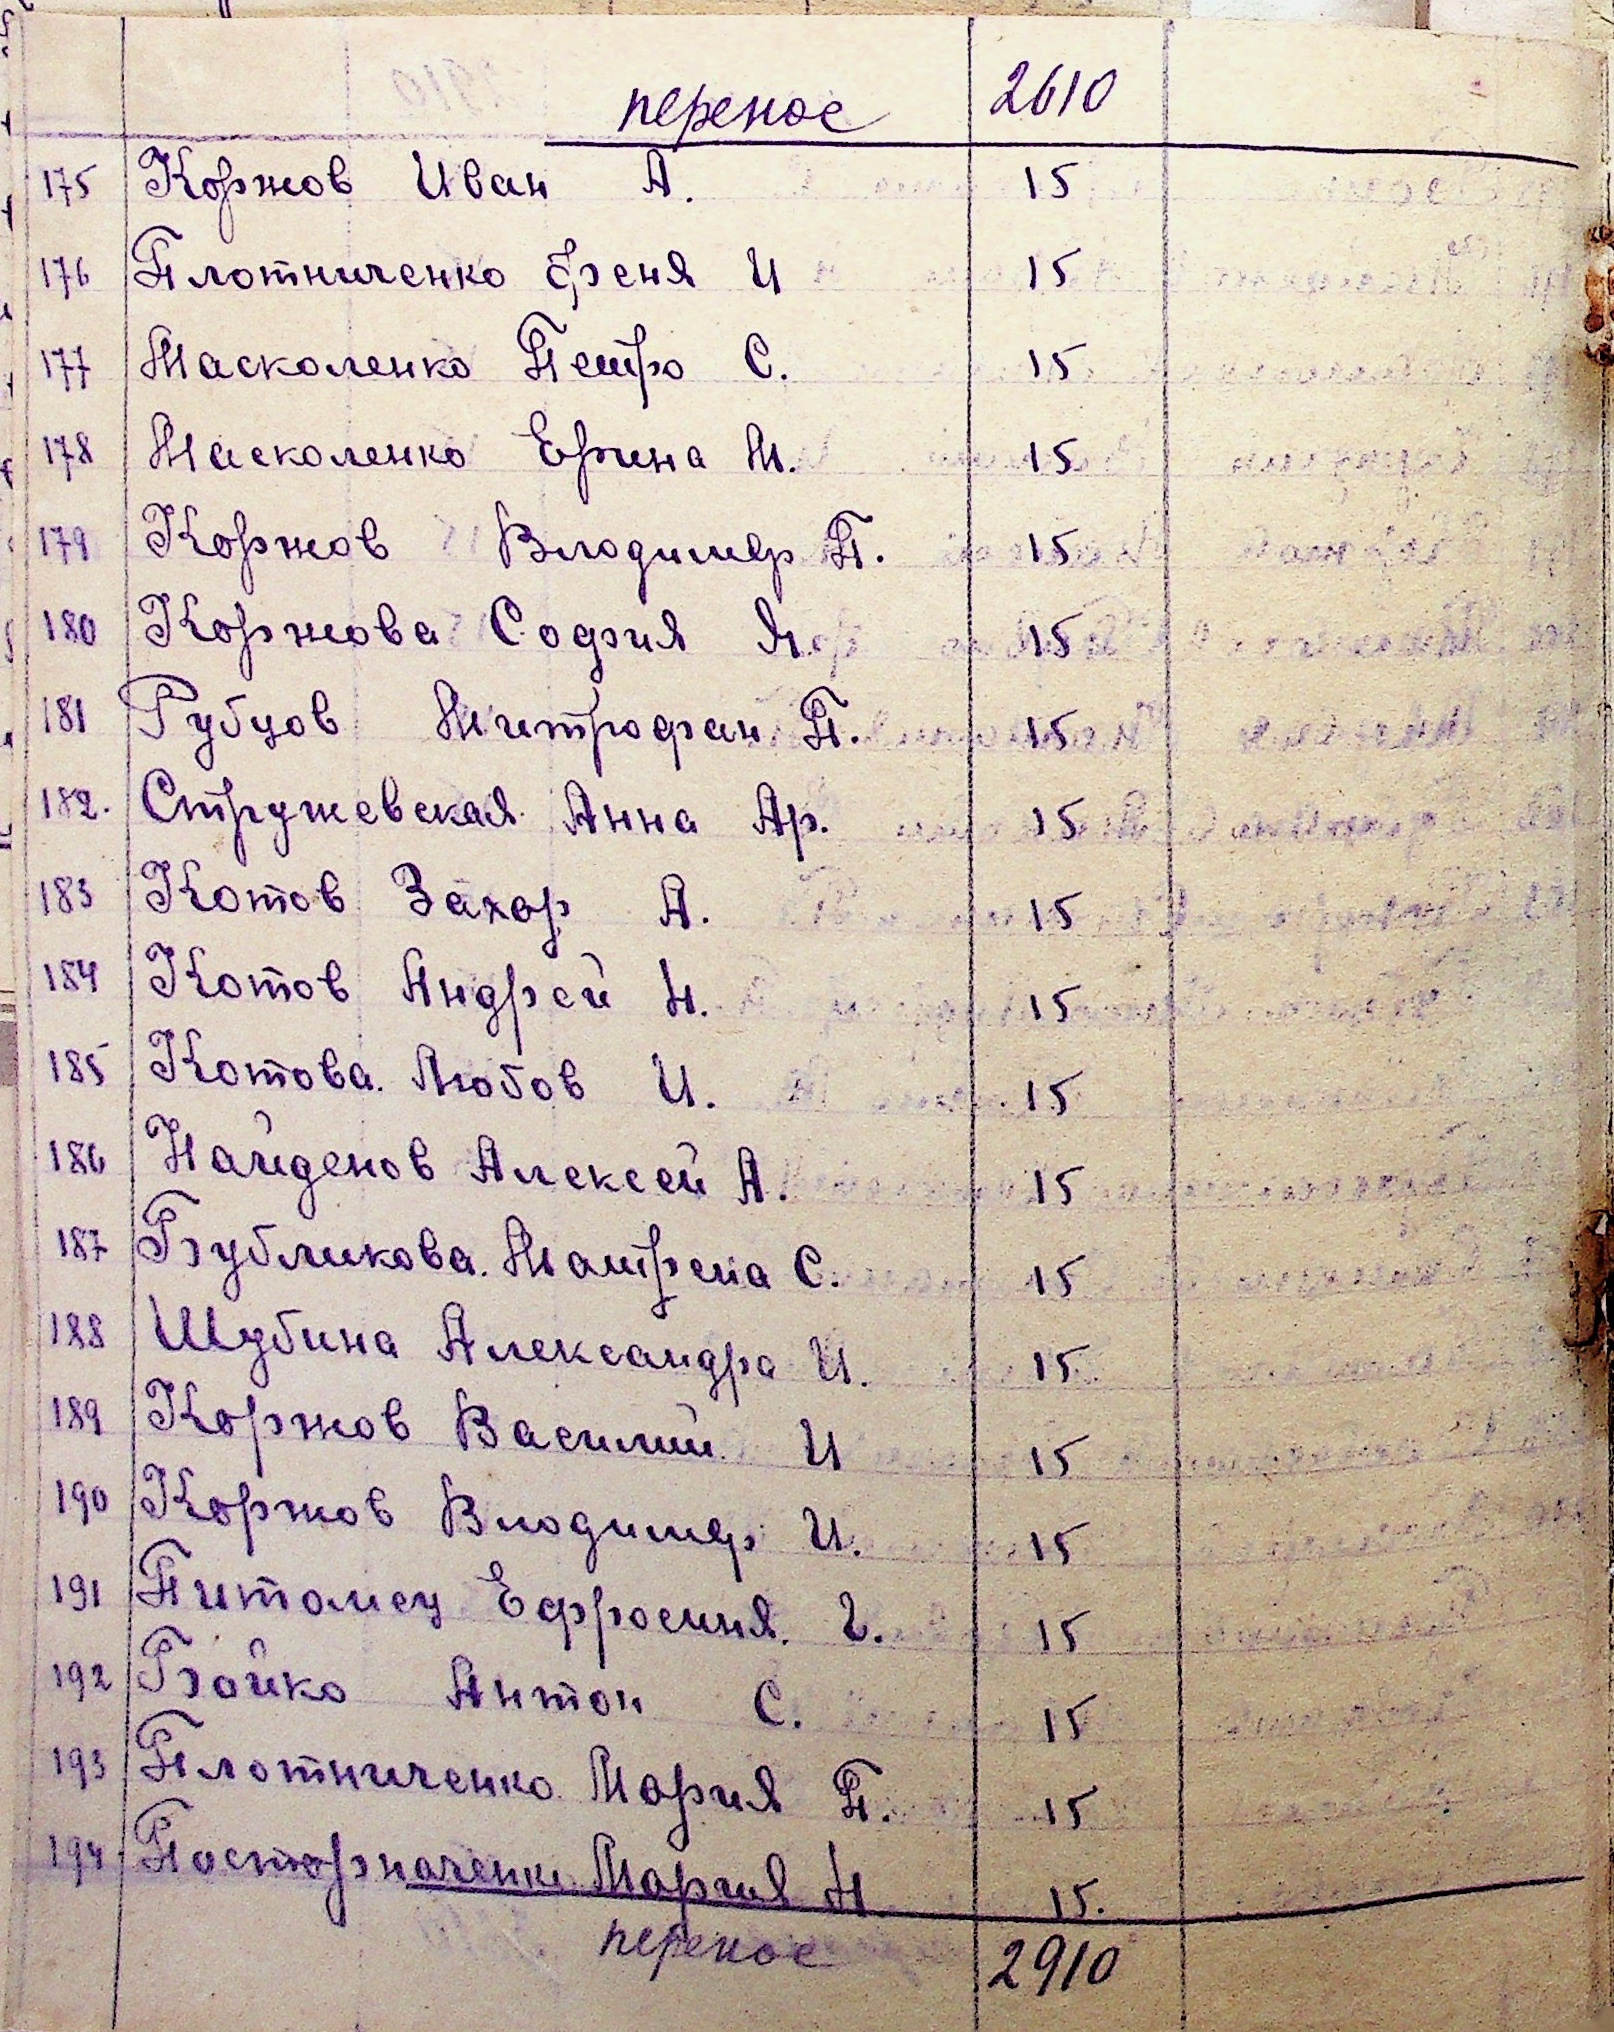 перенос 2610
175 Коржов Иван А. 15
176 Плотниченко Френя И 15
177 Масколенко Петро С. 15
178 Масколенко Ерина М. 15
179 Коржов Влодимер П. 15
180 Коржова София Я. 15
181 Рубцов Митрофан П. 15
182. Стружевская Анна Ар. 15
183 Котов Захар А. 15
184 Котов Андрей Н. 15
185 Котова Любов И. 15
186 Найденов Алексей А. 15
187 Бубликова Матрена С. 15
188 Шубина Александра И. 15
189 Коржов Василий И 15
190 Коржов Влодимер И. 15
191 Питомец Ефросиня. Г. 15
192 Бойко Антон С. 15
193 Плотниченко Мария П. 15
194 Мария Н. 15.
перенос 2910